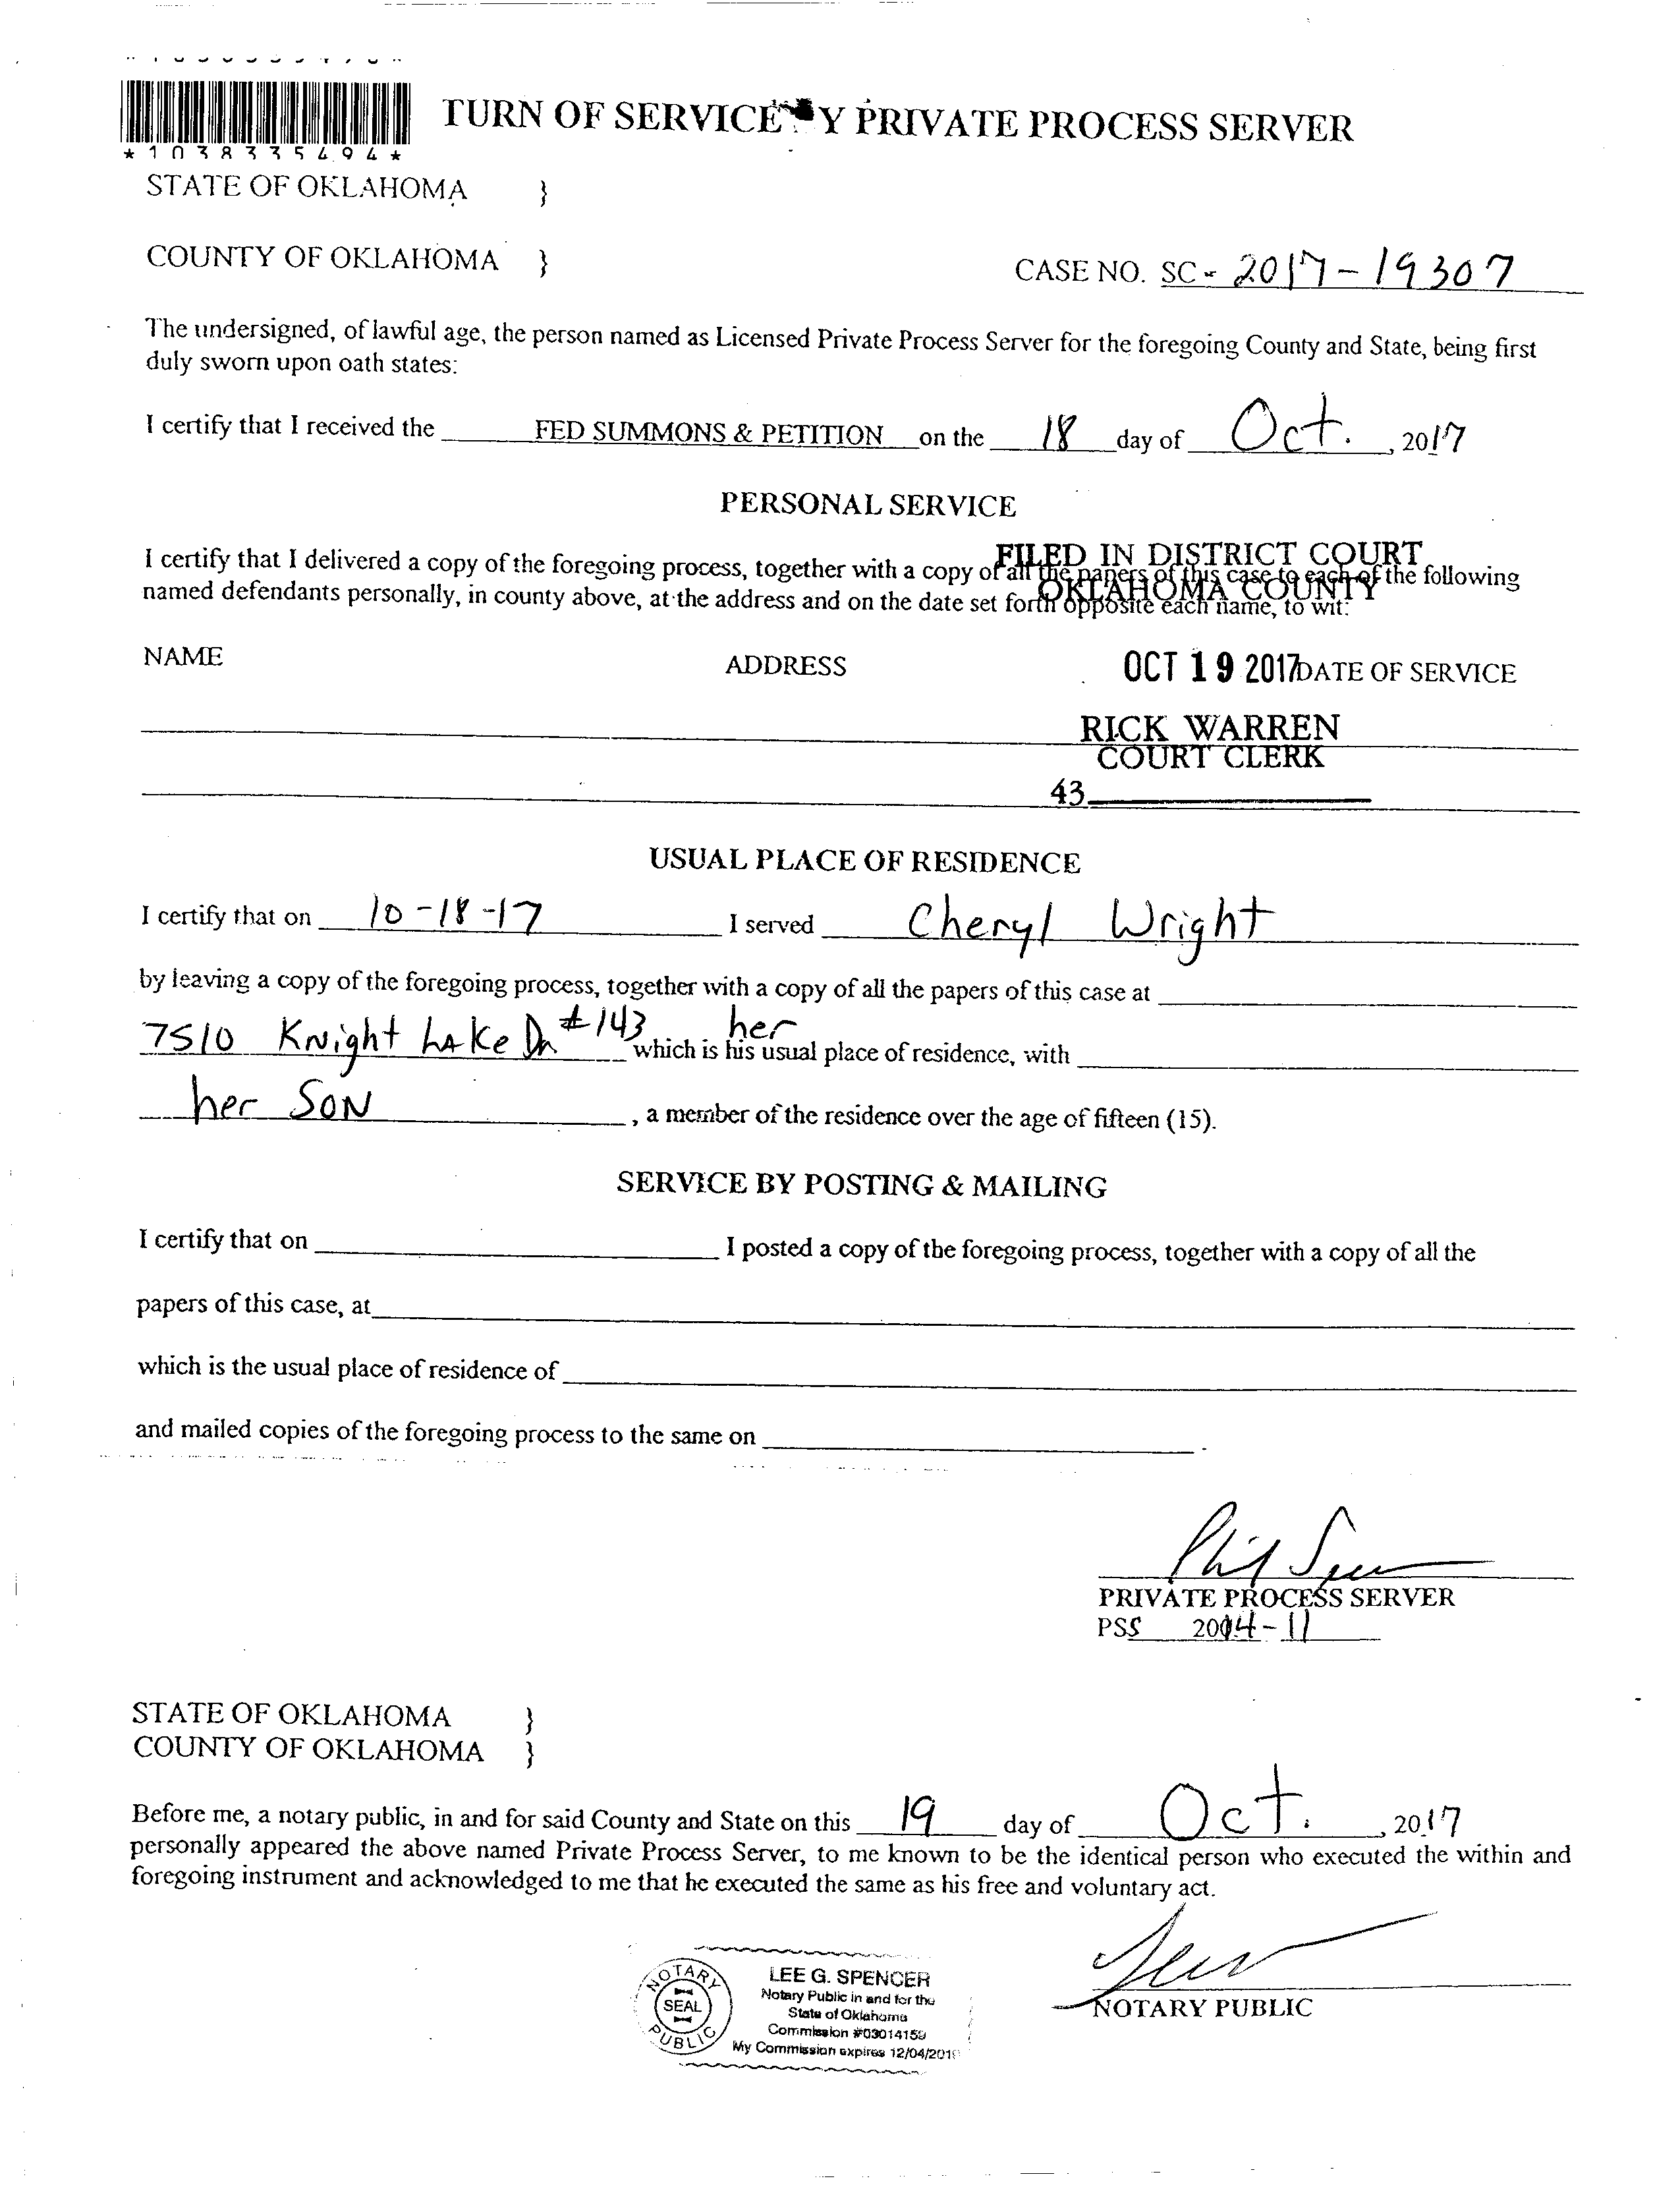 TURN OF SERVICE Y PRIVATE PROCESS SERVER
*1038335494*
STATE OF OKLAHOMA }
COUNTY OF OKLAHOMA }
CASE NO. SC - 2017-19307
The undersigned, of lawful age, the person named as Licensed Private Process Server for the foregoing County and State, being first
duly sworn upon oath states:
I certify that I received the FED SUMMONS & PETITION on the 18 day of Oct. , 2017
PERSONAL SERVICE
FILED IN DISTRICT COURT
OKLAHOMA COUNTY
I certify that I delivered a copy of the foregoing process, together with a copy of all the papers of this case to each of the following
named defendants personally, in county above, at the address and on the date set forth opposite each name, to wit:
NAME ADDRESS OCT 19 2017 DATE OF SERVICE
RICK WARREN
COURT CLERK
43
USUAL PLACE OF RESIDENCE
I certify that on 10-18-17 I served Cheryl Wright
by leaving a copy of the foregoing process, together with a copy of all the papers of this case at
7510 Knight Lake Dr #143 her
which is his usual place of residence, with
her SON , a member of the residence over the age of fifteen (15).
SERVICE BY POSTING & MAILING
I certify that on I posted a copy of the foregoing process, together with a copy of all the
papers of this case, at
which is the usual place of residence of
and mailed copies of the foregoing process to the same on .
PRIVATE PROCESS SERVER
PSS 2004-11
STATE OF OKLAHOMA }
COUNTY OF OKLAHOMA }
Before me, a notary public, in and for said County and State on this 19 day of Oct. , 2017
personally appeared the above named Private Process Server, to me known to be the identical person who executed the within and
foregoing instrument and acknowledged to me that he executed the same as his free and voluntary act.
NOTARY PUBLIC
NOTARY
SEAL
PUBLIC
LEE G. SPENCER
Notary Public in and for the
State of Oklahoma
Commission #03014159
My Commission expires 12/04/201